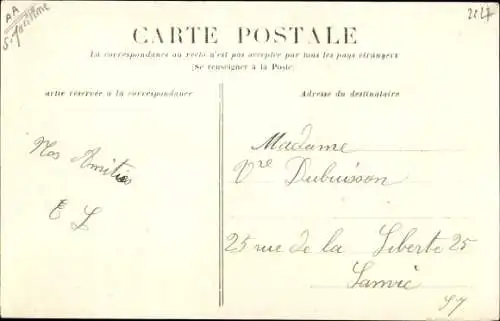 AA
2127
CARTE POSTALE
La correspondance au recto n'est pas acceptée par tous les pays étrangers
(Se renseigner à la Poste)
artie réservée à la correspondance
Adresse du destinataire
Nos Amitiés
E L
Madame
Vve Dubuisson
25 rue de la Liberte 25
Lanvic